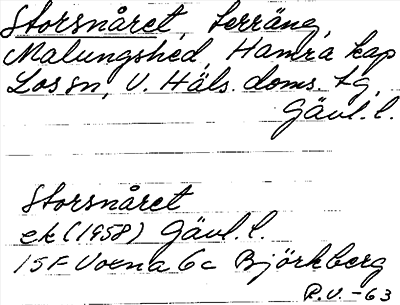 Storsnåret, terräng,
Malungshed, Hamra kap
Lossn, V. Häls. doms. tg,
Gävl. l.
Storsnåret
ek (1958) Gävl. l.
15F Voxna 6c Björkberg
R.V. -63